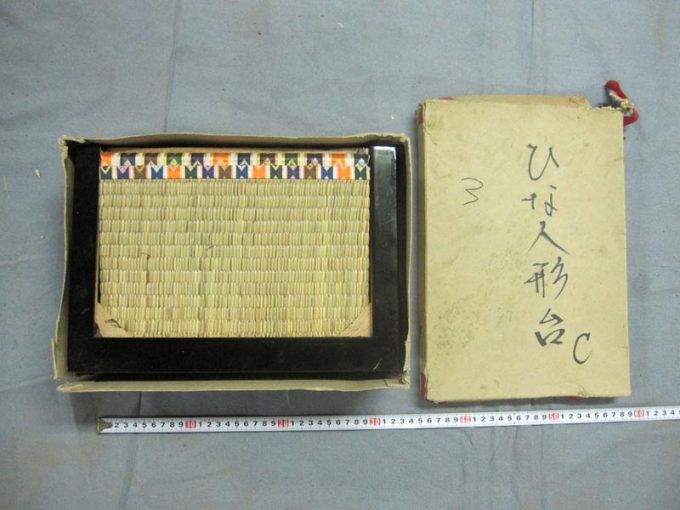 ひな人形台
3
C
1 2 3 4 5 6 7 8 9 10 1 2 3 4 5 6 7 8 9 20 1 2 3 4 5 6 7 8 9 30 1 2 3 4 5 6 7 8 9 40 1 2 3 4 5 6 7 8 9 50 1 2 3 4 5 6 7 8 9 60 1 2 3 4